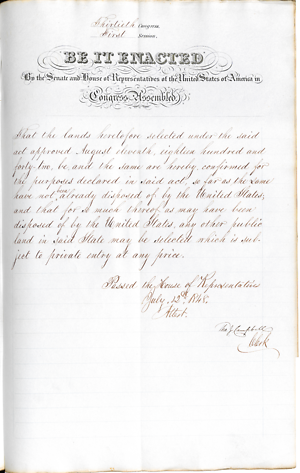 Thirtieth Congress
First Session,
BE IT ENACTED
By the Senate and House of Representatives of the United States of America in
Congress Assembled
That the lands heretofore selected under the said
act approved August eleventh, eighteen hundred and
forty-two, be, and the same are hereby, confirmed for
the purposes declared in said act, so far as the same
have not been already disposed of by the United States,
and that for so much thereof as may have been
disposed of by the United States, any other public
land in said State may be selected which is sub-
ject to private entry at any price.
Passed the House of Representatives
July 12th 1848.
Attest.
Tho J Campbell
Clerk